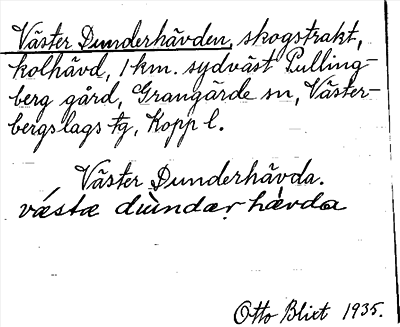 Väster Dunderhävden, skogstrakt,
kolhävd, 1 km. sydväst Pulling-
berg gård, Grangärde sn, Väster-
bergslags tg, Kopp l.
Väster Dunderhävda.
væstæ dùndær hævda
Otto Blixt 1935.